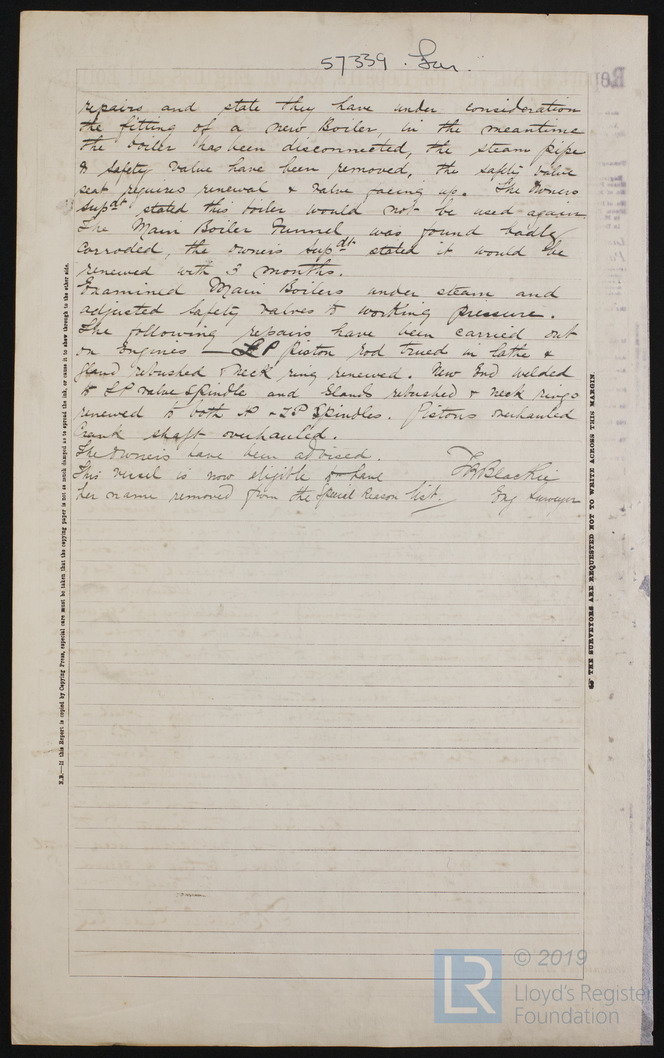 57339
repairs and state they have under consideration
the fitting of a new Boiler, in the meantime
the boiler has been disconnected, the steam pipe
& safety valve have been removed, the safety valve
seat requires renewal & valve facing up. The Owners
Supdt stated this boiler would not be used again.
The Main Boiler Funnel was found badly
corroded, the owners Supdt stated it would be
renewed with 3 months.
Examined Main Boilers under steam and
adjusted safety valves to working pressure.
The following repairs have been carried out
on Engines — LP piston rod trued in lathe &
gland rebushed & neck ring renewed. New End welded
to LP valve spindle and Glands rebushed & neck rings
renewed to both HP & LP Spindles. Pistons overhauled
Crank shaft overhauled.
The Owners have been advised.
This vessel is now eligible to have
her name removed from the Special Reason list.
Blackie
Eng Surveyor
N.B.—If this Report is copied by Copying Press, especial care must be taken that the copying paper is not so much damped as to spread the ink, or cause it to show through to the other side.
THE SURVEYORS ARE REQUESTED NOT TO WRITE ACROSS THIS MARGIN.
LR
© 2019
Lloyd's Register
Foundation